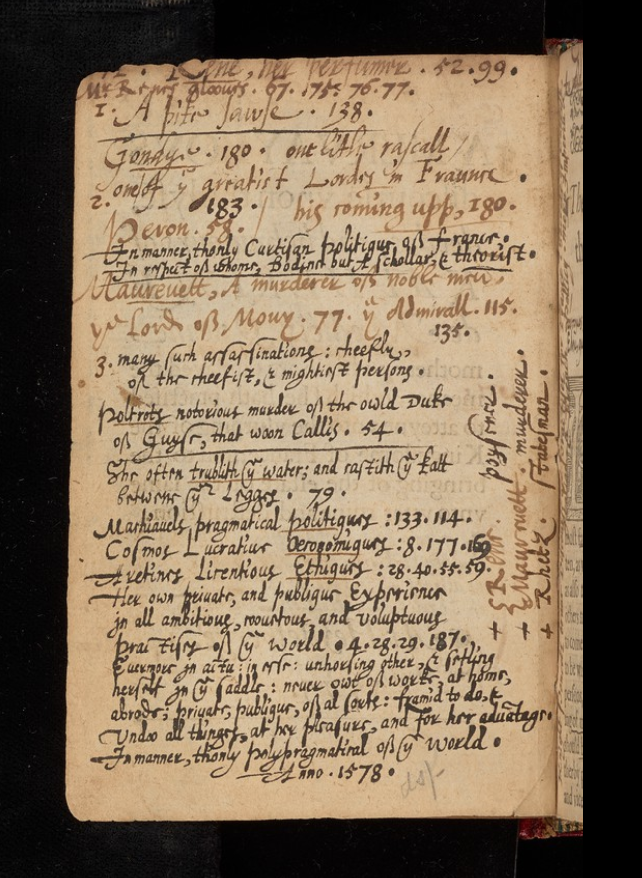 Rene, her perfumer . 52.99.
Mr Renes glooves . 67. 175. 76. 77.
1. A pite sawse . 138.
Gondye . 180 . one litle rascall /
2. one of ye greatist Lordes in Fraunce .
183 / his coming upp, 180.
Pevon . 58.
In manner, thonly Curtisan politique of France .
In respect of whome, Bodine but A scholar, & theorist .
Maurevett, A murderer of noble men,
ye Lord of Mouy . 77 . ye Admirall . 115.
135.
3. many such assassinations : cheefly,
of the cheefist, & mightiest persons .
Poltrots notorious murder of the owld Duke
of Guyse, that woon Callis . 54 .
She often trublith ye water; and castith ye katt
betwene yr Legges . 79 .
Machiavels pragmatical politiques : 133. 114.
Cosmos Lucrative Oeconomiques : 8. 177. 169
Aretines Licentious Ethiques : 28. 40. 55. 59.
Her own private, and publique Experience
in all ambitious, covetous, and voluptuous
practises of ye world . 4. 28. 29. 187.
Evermore in actu : in esse : unhorsing other, & setling
herself in ye saddle : never owt of work, at home,
abrode; private, publique, of al sorts : to do, &
Undoo all thinges, at her pleasure, and for her advātage .
In manner, thonly polypragmatical of ye world .
Anno . 1578 .
+ Rene . poysoner .
+ Maurevett . murderer .
+ Rhetz . statesman .